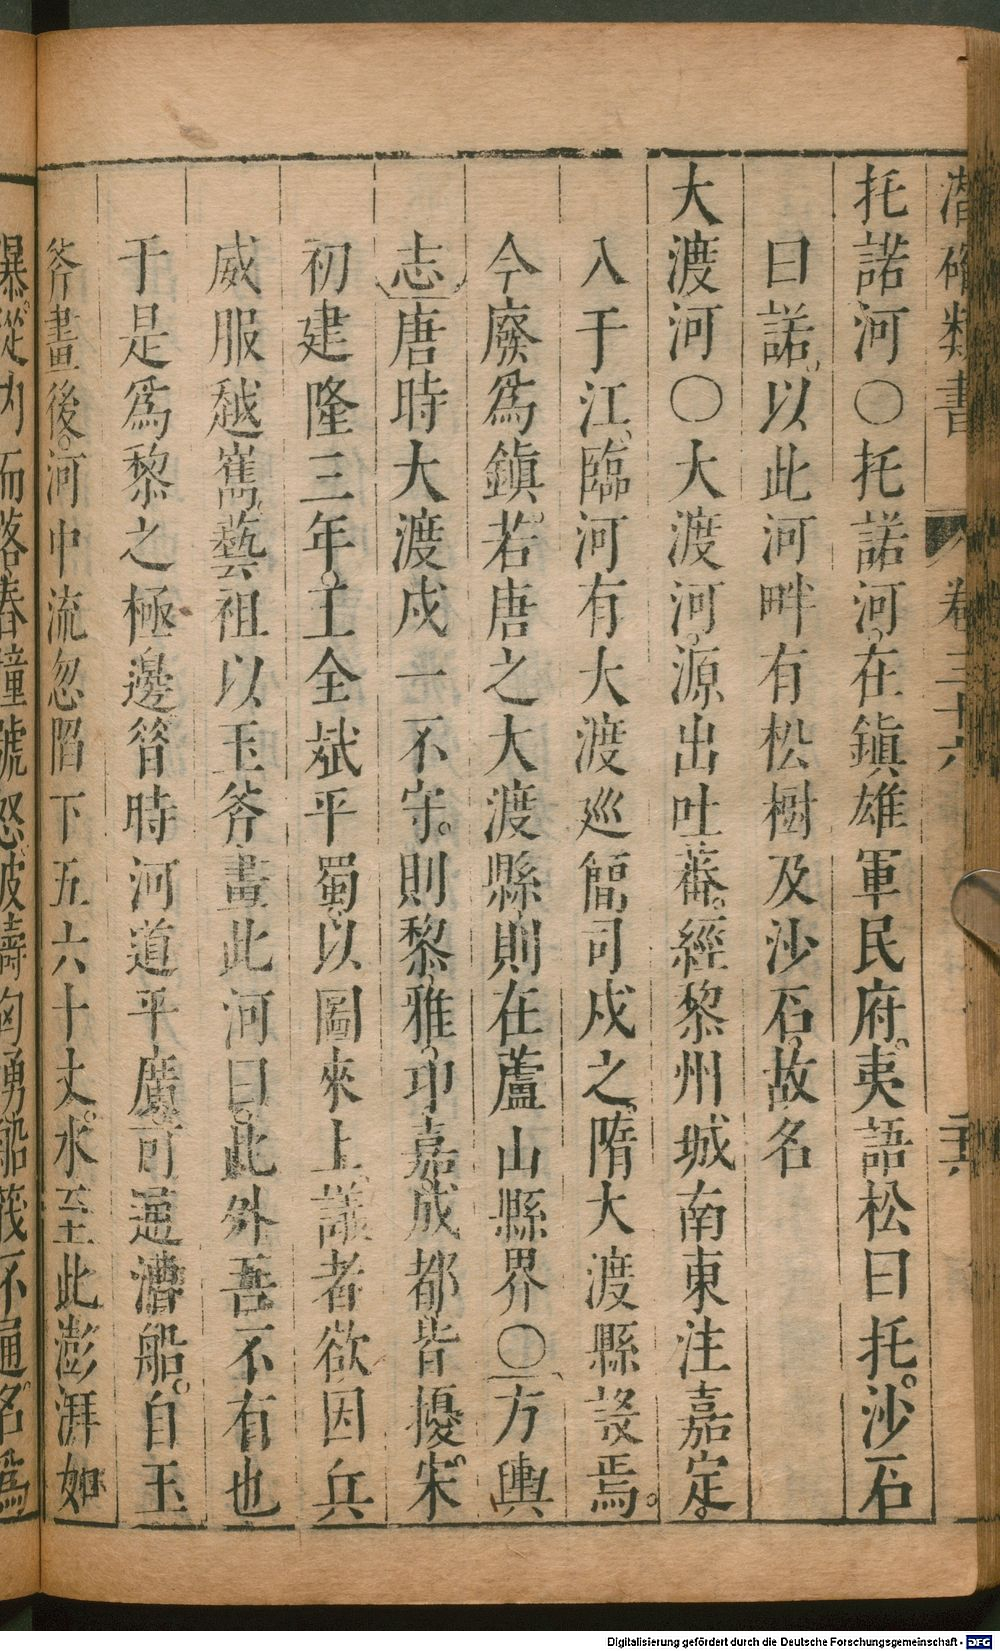 潛確類書 卷三十六 二十六
托諾河○托諾河在鎮雄軍民府。夷語松曰托。沙石
曰諾。以此河畔有松樹及沙石。故名
大渡河○大渡河。源出吐蕃。經黎州城南東注嘉定。
入于江。臨河有大渡巡簡司戍之。隋大渡縣設焉。
今廢爲鎮。若唐之大渡縣則在蘆山縣界○方輿
志唐時大渡戍一不守。則黎雅。卭嘉。成都皆擾。宋
初建隆三年。王全斌平蜀。以圖來上。議者欲因兵
威服越嶲。藝祖以玉斧畫此河曰。此外吾不有也
于是爲黎之極邊。昝時河道平廣可通漕船。自玉
斧畫後。河中流忽陷下五六十丈。水至此澎湃如
瀑。從內而落舂撞號怒波濤洶湧船筏不通。名爲
Digitalisierung gefördert durch die Deutsche Forschungsgemeinschaft - DFG